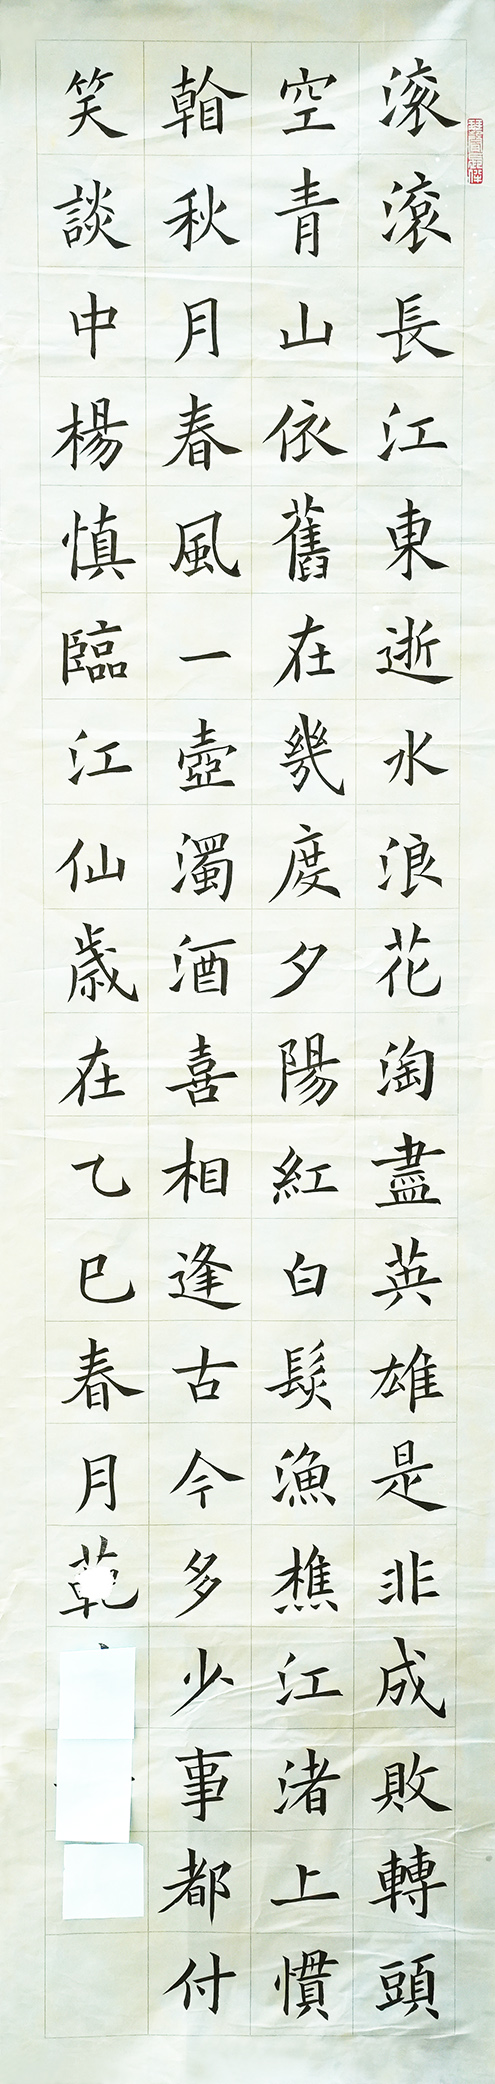 滚滾長江東逝水浪花淘盡英雄是非成敗轉頭
空青山依舊在幾度夕陽紅白髮漁樵江渚上慣
看秋月春風一壺濁酒喜相逢古今多少事都付
笑談中楊慎臨江仙歳在乙巳春月